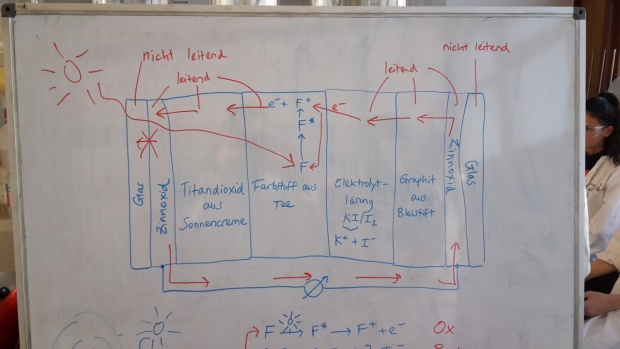 nicht leitend
nicht leitend
leitend
leitend
e⁻ + F⁺
e⁻
F*
F
Glas
Zinnoxid
Titandioxid
aus
Sonnencreme
Farbstoff aus
Tee
Elektrolyt-
lösung
KI/I₂
K⁺ + I⁻
Graphit
aus
Bleistift
Zinnoxid
Glas
F → F* → F⁺ + e⁻ Ox